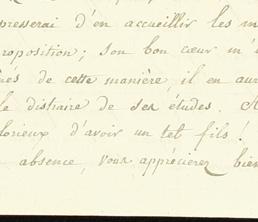 presserai d'en accueillir les m
roposition; son bon cœur m'
és de cette manière, il en aur
le distraire de ses études.
lorieux d'avoir un tel fils!
absence, vous apprécierez bien